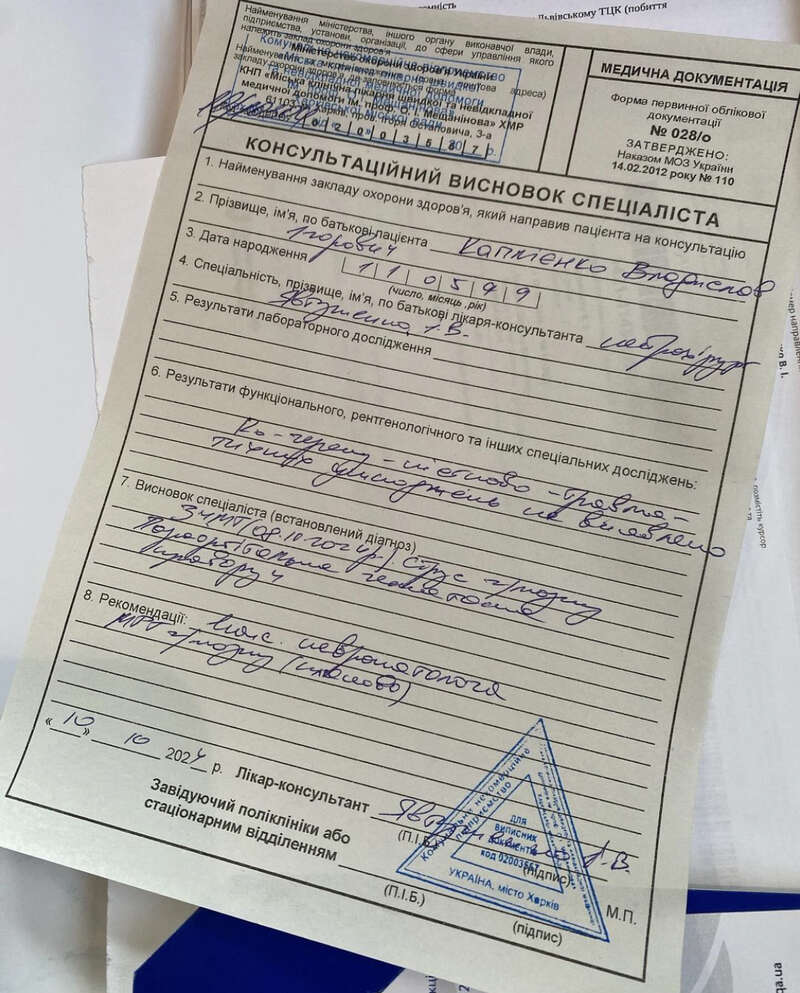 Львівському ТЦК (побиття
Найменування міністерства, іншого органу виконавчої влади,
підприємства, установи, організації, до сфери управління якого
належить заклад охорони здоров'я
Міністерство охорони здоров'я України
Найменування та місцезнаходження (повна поштова адреса)
закладу охорони здоров'я, де заповнюється форма
КНП «Міська клінічна лікарня швидкої та невідкладної
медичної допомоги ім. проф. О. І. Мещанінова» ХМР
61103, м. Харків, пров. Ігоря Остаповича, 3-а
0 2 0 0 3 5 8 7
МЕДИЧНА ДОКУМЕНТАЦІЯ
Форма первинної облікової
документації
№ 028/о
ЗАТВЕРДЖЕНО:
Наказом МОЗ України
14.02.2012 року № 110
КОНСУЛЬТАЦІЙНИЙ ВИСНОВОК СПЕЦІАЛІСТА
1. Найменування закладу охорони здоров'я, який направив пацієнта на консультацію
2. Прізвище, ім'я, по батькові пацієнта
Владислав
Ігорович
3. Дата народження 1 1 0 5 9 9
(число, місяць ,рік)
4. Спеціальність, прізвище, ім'я, по батькові лікаря-консультанта нейрохірург
5. Результати лабораторного дослідження
6. Результати функціонального, рентгенологічного та інших спеціальних досліджень:
черепу - кістково - травма-
тичних ушкоджень не виявлено
7. Висновок спеціаліста (встановлений діагноз)
ЗЧМТ (08.10.2024р). Струс г/мозку
Параорбітальна гематома
праворуч
8. Рекомендації: Конс. невропатолога
МРТ г/мозку (планово)
« 10 » 10 2024 р. Лікар-консультант
(П.І.Б.)
(підпис)
Завідуючий поліклініки або
стаціонарним відділенням
(П.І.Б.)
(підпис)
М.П.
Комунальне некомерційне
підприємство
ДЛЯ
ВИПИСНИХ
ДОКУМЕНТІВ
код 02003587
УКРАЇНА, місто Харків